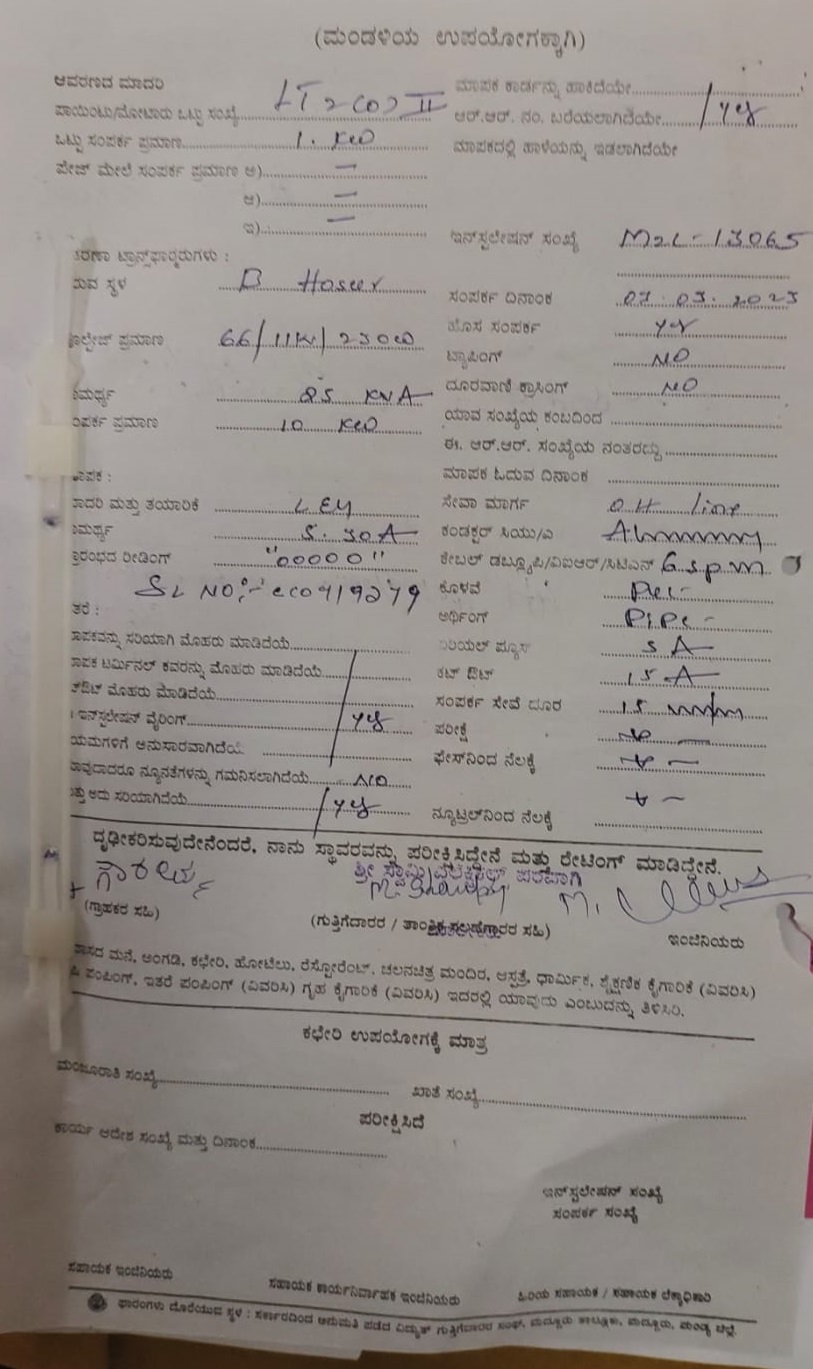 (ಮಂಡಳಿಯ ಉಪಯೋಗಕ್ಕಾಗಿ)
ಆವರಣದ ಮಾದರಿ
ಪಾಯಿಂಟು/ಮೋಟಾರು ಒಟ್ಟು ಸಂಖ್ಯೆ LT 2(a) II
ಒಟ್ಟು ಸಂಪರ್ಕ ಪ್ರಮಾಣ 1. KW
ಫೇಜ್ ಮೇಲೆ ಸಂಪರ್ಕ ಪ್ರಮಾಣ ಅ) —
ಆ) —
ಇ) —
ತರಣಾ ಟ್ರಾನ್ಸ್‌ಫಾರ್ಮರುಗಳು :
ರುವ ಸ್ಥಳ B Hosur
ವೋಲ್ಟೇಜ್ ಪ್ರಮಾಣ 66/11KV/230
ಮರ್ಥ್ಯ 25 KVA
ಂಪರ್ಕ ಪ್ರಮಾಣ 10 KW
ಾಪಕ :
ಾದರಿ ಮತ್ತು ತಯಾರಿಕೆ
ಮರ್ಥ್ಯ 5. 30A
ಾರಂಭದ ರೀಡಿಂಗ್ "00000"
SL NO:-
ತರೆ :
ಾಪಕವನ್ನು ಸರಿಯಾಗಿ ಮೊಹರು ಮಾಡಿದೆಯೆ
ಾಪಕ ಟರ್ಮಿನಲ್ ಕವರನ್ನು ಮೊಹರು ಮಾಡಿದೆಯೆ
ಔಟ್ ಮೊಹರು ಮಾಡಿದೆಯೆ
ಇನ್‌ಸ್ಟಲೇಷನ್ ವೈರಿಂಗ್ yes
ಯಮಗಳಿಗೆ ಅನುಸಾರವಾಗಿದೆಯೆ
ಾವುದಾದರೂ ನ್ಯೂನತೆಗಳನ್ನು ಗಮನಿಸಲಾಗಿದೆಯೆ NO
ತ್ತು ಅದು ಸರಿಯಾಗಿದೆಯೆ yes
ಮಾಪಕ ಕಾರ್ಡನ್ನು ಹಾಕಿದೆಯೇ
ಆರ್.ಆರ್. ನಂ. ಬರೆಯಲಾಗಿದೆಯೇ yes
ಮಾಪಕದಲ್ಲಿ ಹಾಳೆಯನ್ನು ಇಡಲಾಗಿದೆಯೇ
ಇನ್‌ಸ್ಟಲೇಷನ್ ಸಂಖ್ಯೆ M2L-13065
ಸಂಪರ್ಕ ದಿನಾಂಕ 07.03.2023
ಹೊಸ ಸಂಪರ್ಕ yes
ಟ್ಯಾಪಿಂಗ್ NO
ದೂರವಾಣಿ ಕ್ರಾಸಿಂಗ್ NO
ಯಾವ ಸಂಖ್ಯೆಯ ಕಂಬದಿಂದ
ಈ. ಆರ್.ಆರ್. ಸಂಖ್ಯೆಯ ನಂತರದ್ದು
ಮಾಪಕ ಓದುವ ದಿನಾಂಕ
ಸೇವಾ ಮಾರ್ಗ OH line
ಕಂಡಕ್ಟರ್ ಸಿಯು/ಎ
ಕೇಬಲ್ ಡಬ್ಲ್ಯೂಪಿ/ವಿಐಆರ್/ಸಿಟಿಎಸ್ 6 sqmm
ಕೊಳವೆ
ಅರ್ಥಿಂಗ್ Pipe
ಏರಿಯಲ್ ಫ್ಯೂಸ್ 5 A
ಕಟ್ ಔಟ್ 15 A
ಸಂಪರ್ಕ ಸೇವೆ ದೂರ 15
ಪರೀಕ್ಷೆ
ಫೇಸ್‌ನಿಂದ ನೆಲಕ್ಕೆ
ನ್ಯೂಟ್ರಲ್‌ನಿಂದ ನೆಲಕ್ಕೆ
ದೃಢೀಕರಿಸುವುದೇನೆಂದರೆ, ನಾನು ಸ್ಥಾವರವನ್ನು ಪರೀಕ್ಷಿಸಿದ್ದೇನೆ ಮತ್ತು ರೇಟಿಂಗ್ ಮಾಡಿದ್ದೇನೆ.
ಶ್ರೀ ಸ್ವಾಮಿ ಎಲೆಕ್ಟ್ರಿಕಲ್ಸ್ ಪರವಾಗಿ
(ಗ್ರಾಹಕರ ಸಹಿ) (ಗುತ್ತಿಗೆದಾರರ / ತಾಂತ್ರಿಕ ಸಲಹೆಗಾರರ ಸಹಿ) ಇಂಜಿನಿಯರು
ಾಸದ ಮನೆ, ಅಂಗಡಿ, ಕಛೇರಿ, ಹೋಟೆಲು, ರೆಸ್ಟೋರೆಂಟ್, ಚಲನಚಿತ್ರ ಮಂದಿರ, ಆಸ್ಪತ್ರೆ, ಧಾರ್ಮಿಕ, ಶೈಕ್ಷಣಿಕ ಕೈಗಾರಿಕೆ (ವಿವರಿಸಿ)
ಪಂಪಿಂಗ್, ಇತರೆ ಪಂಪಿಂಗ್ (ವಿವರಿಸಿ) ಗೃಹ ಕೈಗಾರಿಕೆ (ವಿವರಿಸಿ) ಇದರಲ್ಲಿ ಯಾವುದು ಎಂಬುದನ್ನು ತಿಳಿಸಿರಿ.
ಕಛೇರಿ ಉಪಯೋಗಕ್ಕೆ ಮಾತ್ರ
ಮಂಜೂರಾತಿ ಸಂಖ್ಯೆ ಖಾತೆ ಸಂಖ್ಯೆ
ಪರೀಕ್ಷಿಸಿದೆ
ಕಾರ್ಯ ಆದೇಶ ಸಂಖ್ಯೆ ಮತ್ತು ದಿನಾಂಕ
ಇನ್‌ಸ್ಟಲೇಷನ್ ಸಂಖ್ಯೆ
ಸಂಪರ್ಕ ಸಂಖ್ಯೆ
ಸಹಾಯಕ ಇಂಜಿನಿಯರು ಸಹಾಯಕ ಕಾರ್ಯನಿರ್ವಾಹಕ ಇಂಜಿನಿಯರು ಹಿರಿಯ ಸಹಾಯಕ / ಸಹಾಯಕ ಲೆಕ್ಕಾಧಿಕಾರಿ
ಫಾರಂಗಳು ದೊರೆಯುವ ಸ್ಥಳ : ಸರ್ಕಾರದಿಂದ ಅನುಮತಿ ಪಡೆದ ವಿದ್ಯುತ್ ಗುತ್ತಿಗೆದಾರರ ಸಂಘ, ಮದ್ದೂರು ತಾಲ್ಲೂಕು, ಮದ್ದೂರು, ಮಂಡ್ಯ ಜಿಲ್ಲೆ.